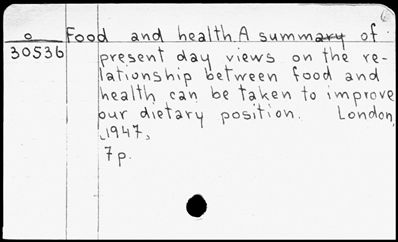 o Food and health. A summary of
30536 present day views on the re-
lationship between food and
health can be taken to improve
our dietary position. London,
1947,
7 p.